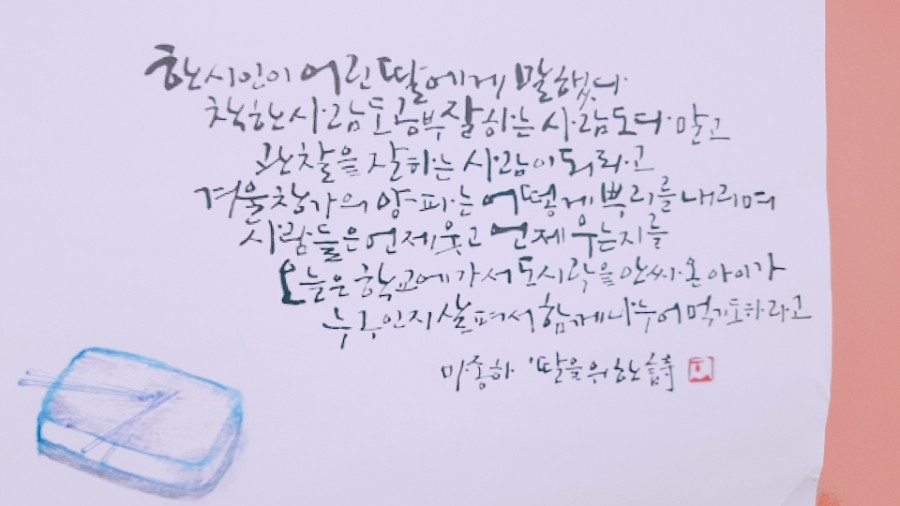 한 시인이 어린 딸에게 말했다
착한 사람도 공부 잘하는 사람도 되지 말고
관찰을 잘하는 사람이 되라고
겨울 창가의 양파는 어떻게 뿌리를 내리며
사람들은 언제 웃고 언제 우는지를
오늘은 학교에 가서 도시락을 안 싸온 아이가
누구인지 살펴서 함께 나누어 먹기도 하라고
마종하 '딸을 위한 詩